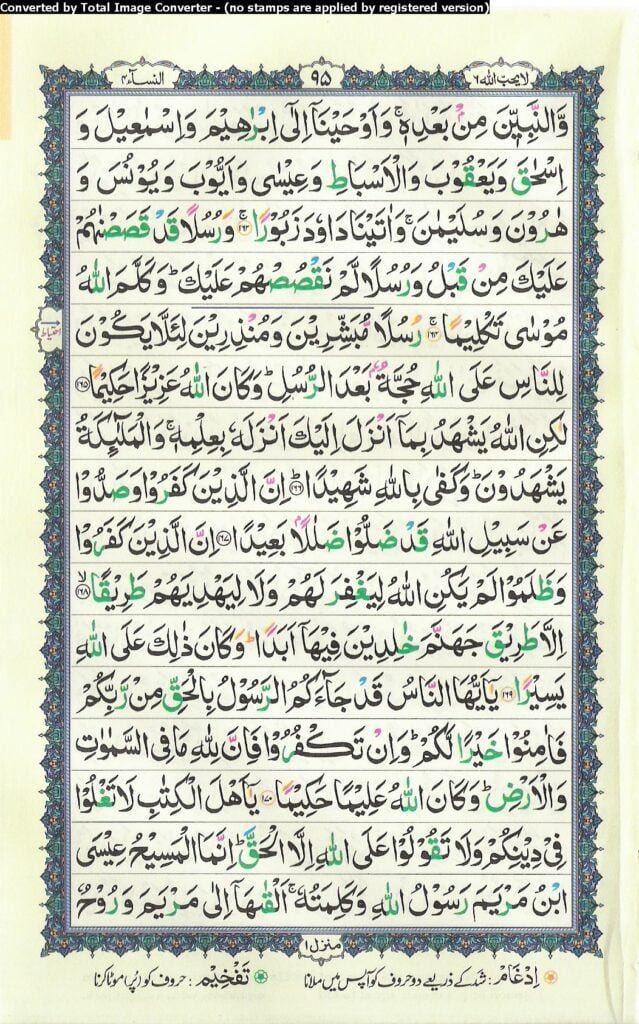 Converted by Total Image Converter - (no stamps are applied by registered version)
لا یحب اللہ ۶
۹۵
النسآء ۴
وَّالنَّبِيّٖنَ مِنْۢ بَعْدِهٖ ۚ وَاَوْحَيْنَاۤ اِلٰۤى اِبْرٰهِيْمَ وَاِسْمٰعِيْلَ وَ
اِسْحٰقَ وَيَعْقُوْبَ وَالْاَسْبَاطِ وَعِيْسٰى وَاَيُّوْبَ وَيُوْنُسَ وَ
هٰرُوْنَ وَسُلَيْمٰنَ ۚ وَاٰتَيْنَا دَاوٗدَ زَبُوْرًا ۚ ﴿۱۶۳﴾ وَرُسُلًا قَدْ قَصَصْنٰهُمْ
عَلَيْكَ مِنْ قَبْلُ وَرُسُلًا لَّمْ نَقْصُصْهُمْ عَلَيْكَ ؕ وَكَلَّمَ اللّٰهُ
مُوْسٰى تَكْلِيْمًا ۚ ﴿۱۶۴﴾ رُسُلًا مُّبَشِّرِيْنَ وَمُنْذِرِيْنَ لِئَلَّا يَكُوْنَ
احتیاط
لِلنَّاسِ عَلَى اللّٰهِ حُجَّةٌۢ بَعْدَ الرُّسُلِ ؕ وَكَانَ اللّٰهُ عَزِيْزًا حَكِيْمًا ﴿۱۶۵﴾
لٰكِنِ اللّٰهُ يَشْهَدُ بِمَاۤ اَنْزَلَ اِلَيْكَ اَنْزَلَهٗ بِعِلْمِهٖ ۚ وَالْمَلٰٓئِكَةُ
يَشْهَدُوْنَ ؕ وَكَفٰى بِاللّٰهِ شَهِيْدًا ؕ ﴿۱۶۶﴾ اِنَّ الَّذِيْنَ كَفَرُوْا وَصَدُّوْا
عَنْ سَبِيْلِ اللّٰهِ قَدْ ضَلُّوْا ضَلٰلًۢا بَعِيْدًا ﴿۱۶۷﴾ اِنَّ الَّذِيْنَ كَفَرُوْا
وَظَلَمُوْا لَمْ يَكُنِ اللّٰهُ لِيَغْفِرَ لَهُمْ وَلَا لِيَهْدِيَهُمْ طَرِيْقًا ۙ ﴿۱۶۸﴾
اِلَّا طَرِيْقَ جَهَنَّمَ خٰلِدِيْنَ فِيْهَاۤ اَبَدًا ؕ وَكَانَ ذٰلِكَ عَلَى اللّٰهِ
يَسِيْرًا ﴿۱۶۹﴾ يٰۤاَيُّهَا النَّاسُ قَدْ جَآءَكُمُ الرَّسُوْلُ بِالْحَقِّ مِنْ رَّبِّكُمْ
فَاٰمِنُوْا خَيْرًا لَّكُمْ ؕ وَاِنْ تَكْفُرُوْا فَاِنَّ لِلّٰهِ مَا فِى السَّمٰوٰتِ
وَالْاَرْضِ ؕ وَكَانَ اللّٰهُ عَلِيْمًا حَكِيْمًا ﴿۱۷۰﴾ يٰۤاَهْلَ الْكِتٰبِ لَا تَغْلُوْا
فِىْ دِيْنِكُمْ وَلَا تَقُوْلُوْا عَلَى اللّٰهِ اِلَّا الْحَقَّ ؕ اِنَّمَا الْمَسِيْحُ عِيْسَى
ابْنُ مَرْيَمَ رَسُوْلُ اللّٰهِ وَكَلِمَتُهٗ ۚ اَلْقٰىهَاۤ اِلٰى مَرْيَمَ وَرُوْحٌ
منزل ۱
اِدْغَام : شد کے ذریعے دو حروف کو آپس میں ملانا
تَفْخِیْم : حروف کو (پُر) موٹا کرنا